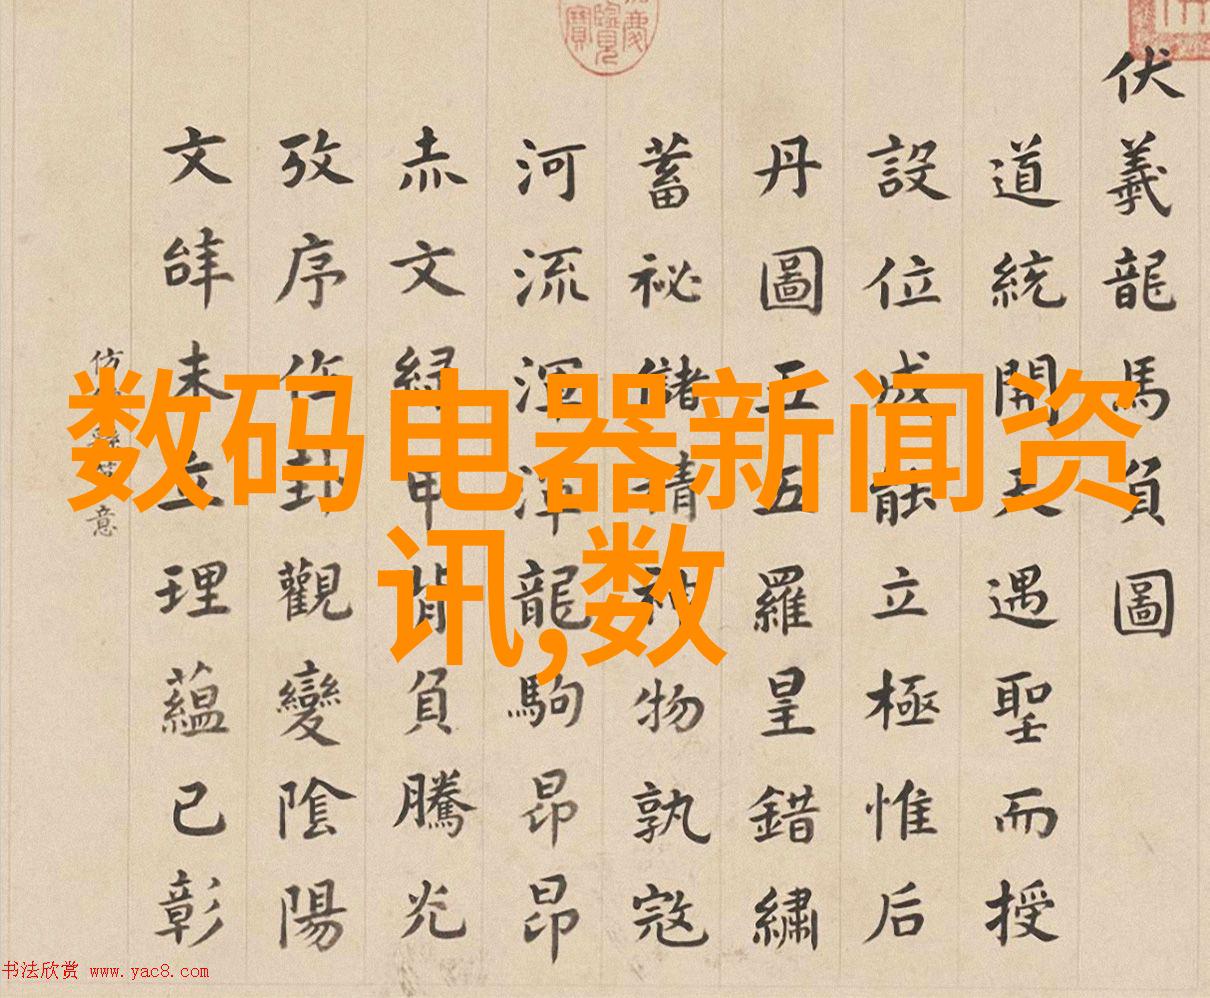 伏羲龍馬負圖
道統開天遇聖而授
設位成能立極惟后
丹圖五羅皇錯繡
蓄祕儲精神物孰寇
河流渾渾龍駒昂昂
赤文綠甲背負騰光
攷序作卦觀變陰陽
文皡未立理蘊已彰
意
数码电器新闻资
讯,数
书法欣赏 www.yac8.com